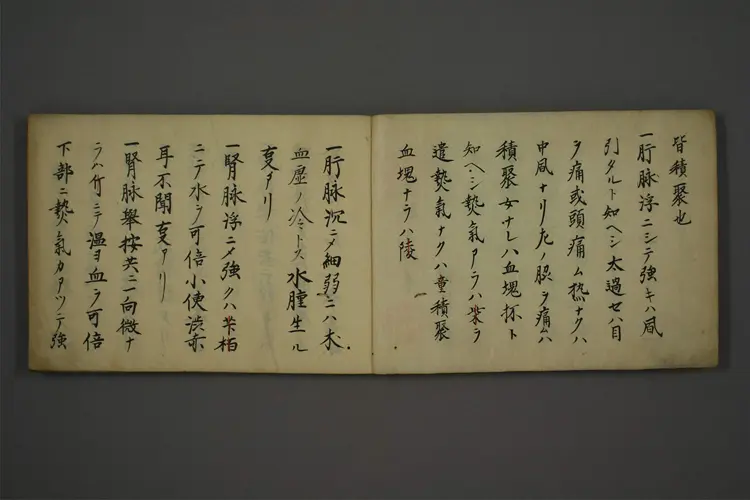 皆積聚也
一肝脉浮ニシテ強キハ風
引タルト知ヘシ太過セハ目
ヲ痛或頭痛ム熱ナクハ
中風ナリ左ノ股ヲ痛ムハ
積聚女ナレハ血塊抔ト
知ヘシ熱氣アラハ柴ヲ
遣熱氣ナクハ童積聚
血塊ナラハ陵
一肝脉沉ニメ細弱ニハ木
血虚ノ冷トス水腫生ル
叓アリ
一腎脉浮ニメ強クハ苄栢
ニテ水ヲ可倍小便渋赤
耳不聞叓アリ
一腎脉擧按共ニ一向微ナ
ラハ竹ニテ温ヨ血ヲ可倍
下部ニ熱ノ氣カアツテ強